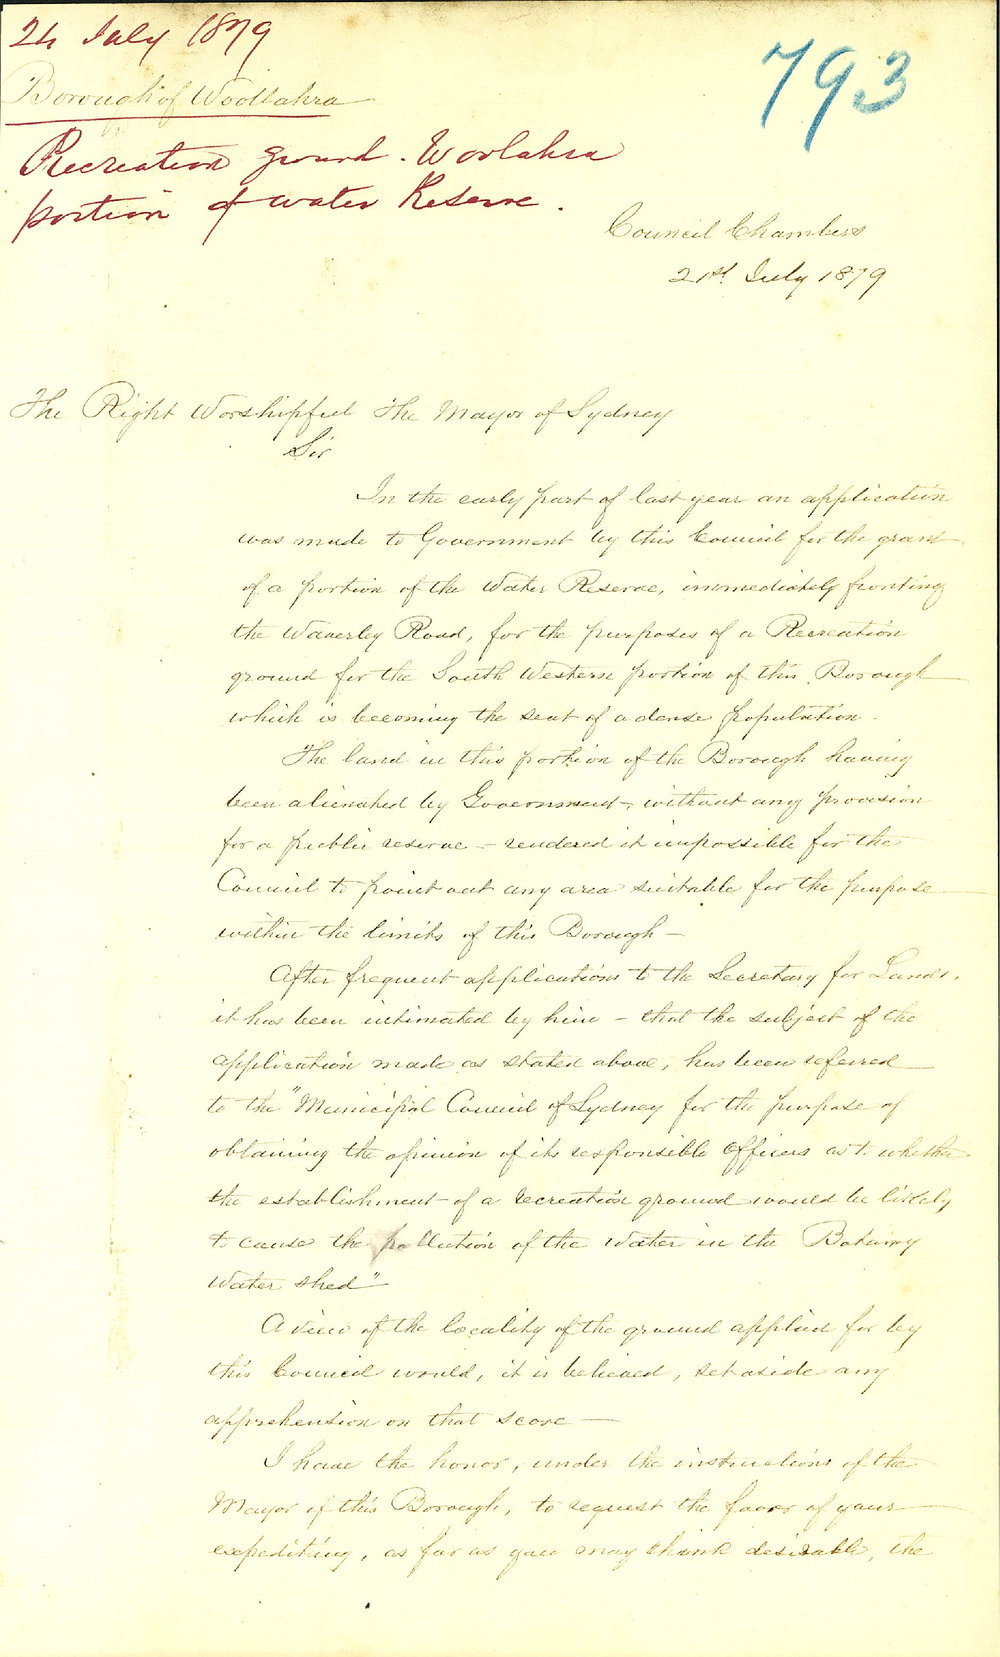 24 July 1879
793
Borough of Woollahra
Recreation ground. Woolahra
portion of water Reserve.
Council Chambers
21st July 1879
The Right Worshipful The Mayor of Sydney
Sir
In the early part of last year an application
was made to Government by this Council for the grant
of a portion of the Water Reserve, immediately fronting
the Waverley Road, for the purposes of a Recreation
ground for the South Western portion of this Borough
which is becoming the seat of a dense population.
The land in this portion of the Borough having
been alienated by Government, without any provision
for a public reserve – rendered it impossible for the
Council to point out any area suitable for the purpose
within the limits of this Borough –
After frequent applications to the Secretary for Lands,
it has been intimated by him – that the subject of the
application made as stated above, has been referred
to the "Municipal Council of Sydney for the purpose of
obtaining the opinion of its responsible Officers as to whether
the establishment of a recreation ground would be likely
to cause the pollution of the Water in the Botany
Water shed"
A view of the locality of the ground applied for by
this Council would, it is believed, set aside any
apprehension on that score –
I have the honor, under the instructions of the
Mayor of this Borough, to request the favor of your
expediting, as far as you may think desirable, the